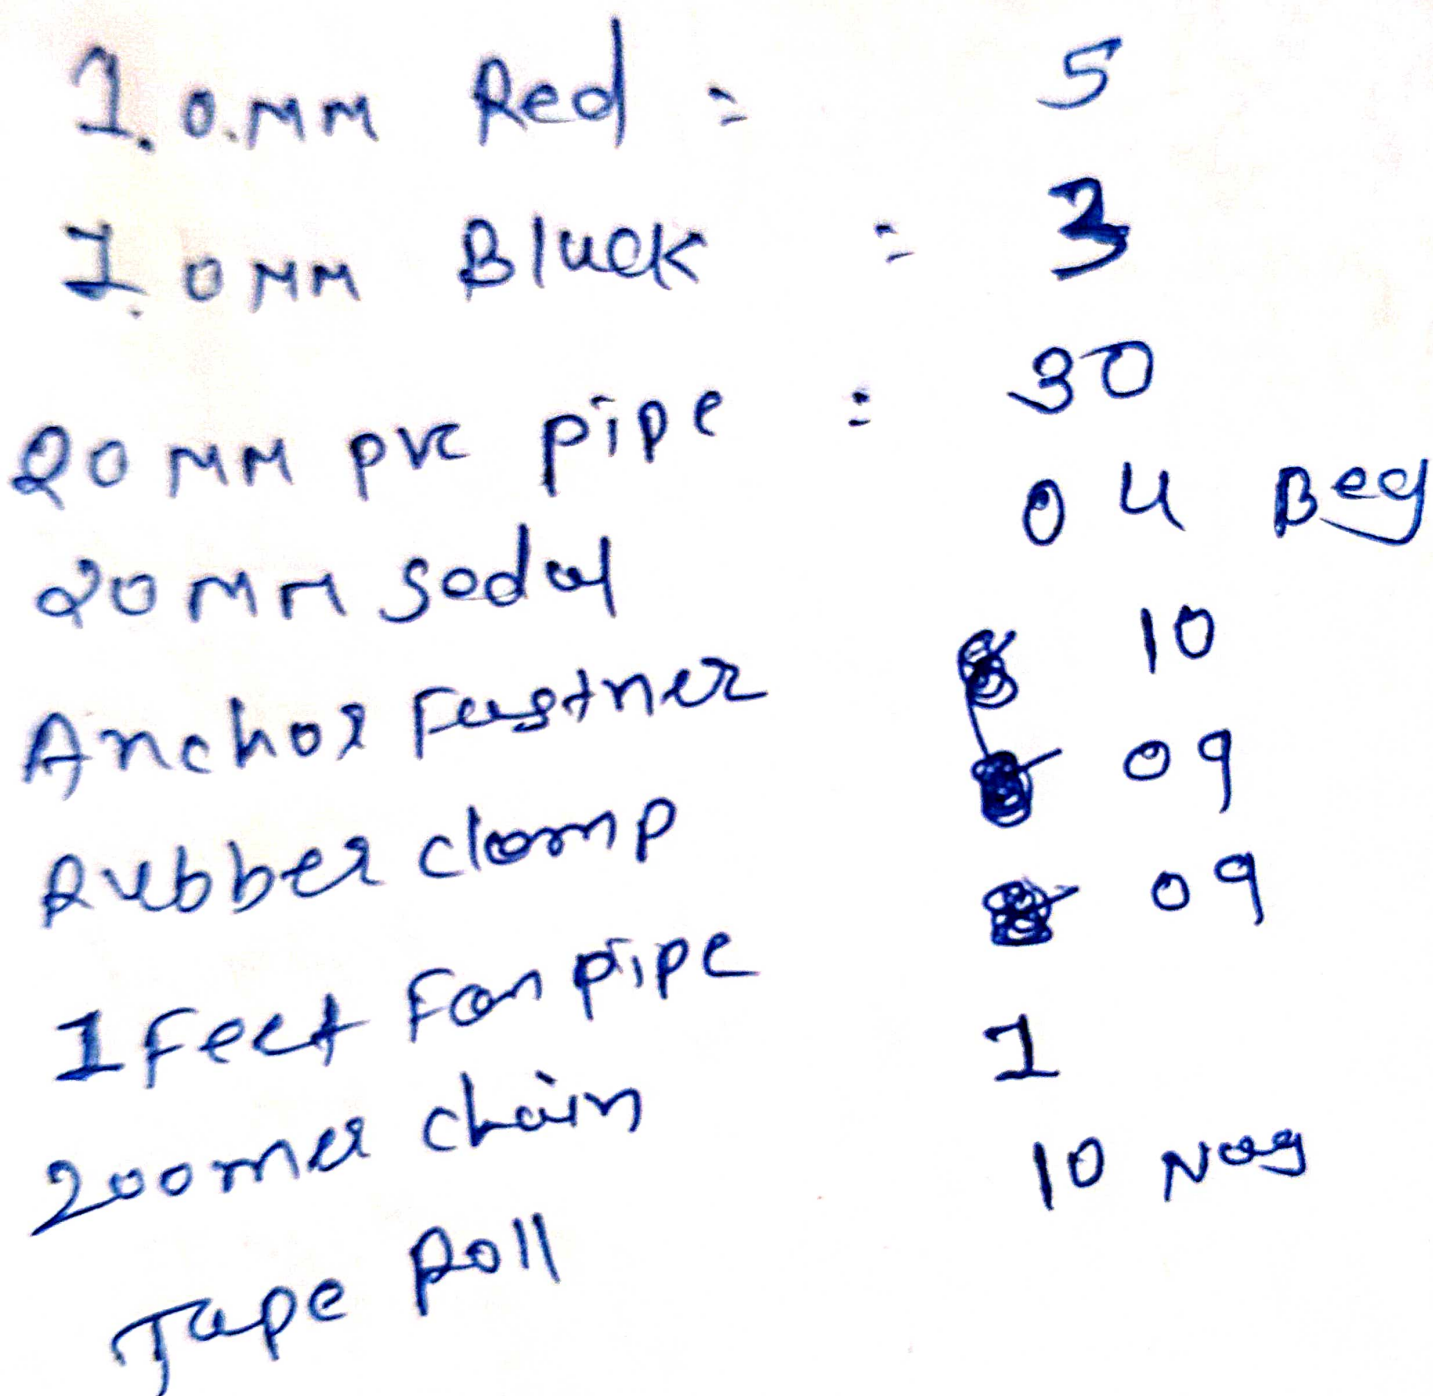 1.0.MM Red = 5
1.0MM Bluck = 3
20MM pvc pipe = 30
20MM sodal 04 Beg
Anchor Fastner 10
Rubber clomp 09
1 feet Fan pipe 09
200mer chain 1
Tape Roll 10 Nos